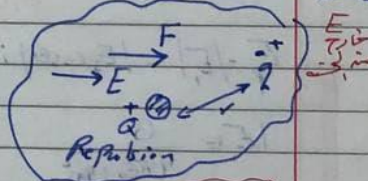 F
E
+
q
+
Q
r
Repulsion
E